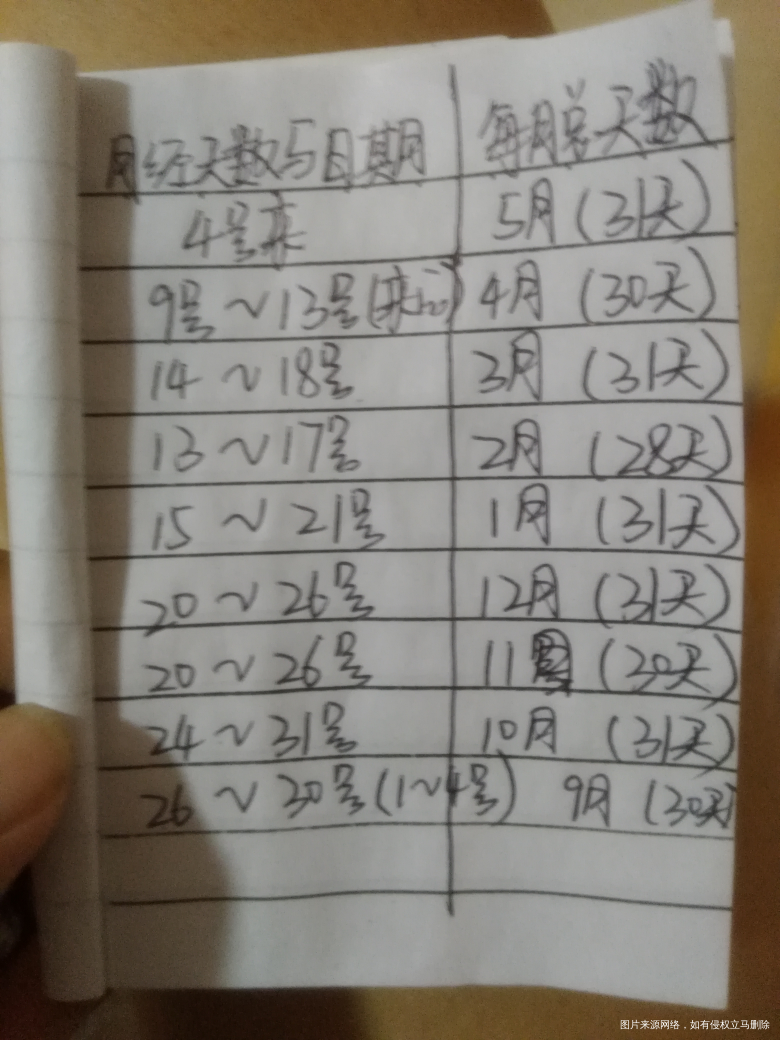 月经天数与日期 每月总天数
4号来 5月(31天)
9号~13号 4月(30天)
14~18号 3月(31天)
13~17号 2月(28天)
15~21号 1月(31天)
20~26号 12月(31天)
20~26号 11 (30天)
24~31号 10月(31天)
26~30号(1~4号) 9月(30天)
图片来源网络，如有侵权立马删除